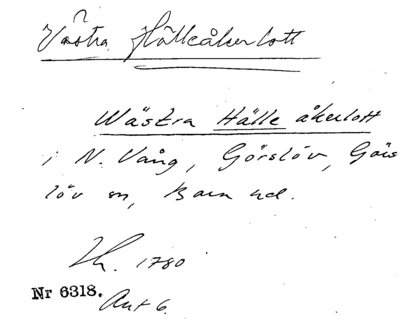 Västra Hälleåkerlott
Wästra Hälle åkerlott
i N. Vång, Görslöv, Görs
löv sn, Bara hd.
Lh. 1780
Nr 6318. Akt 6.